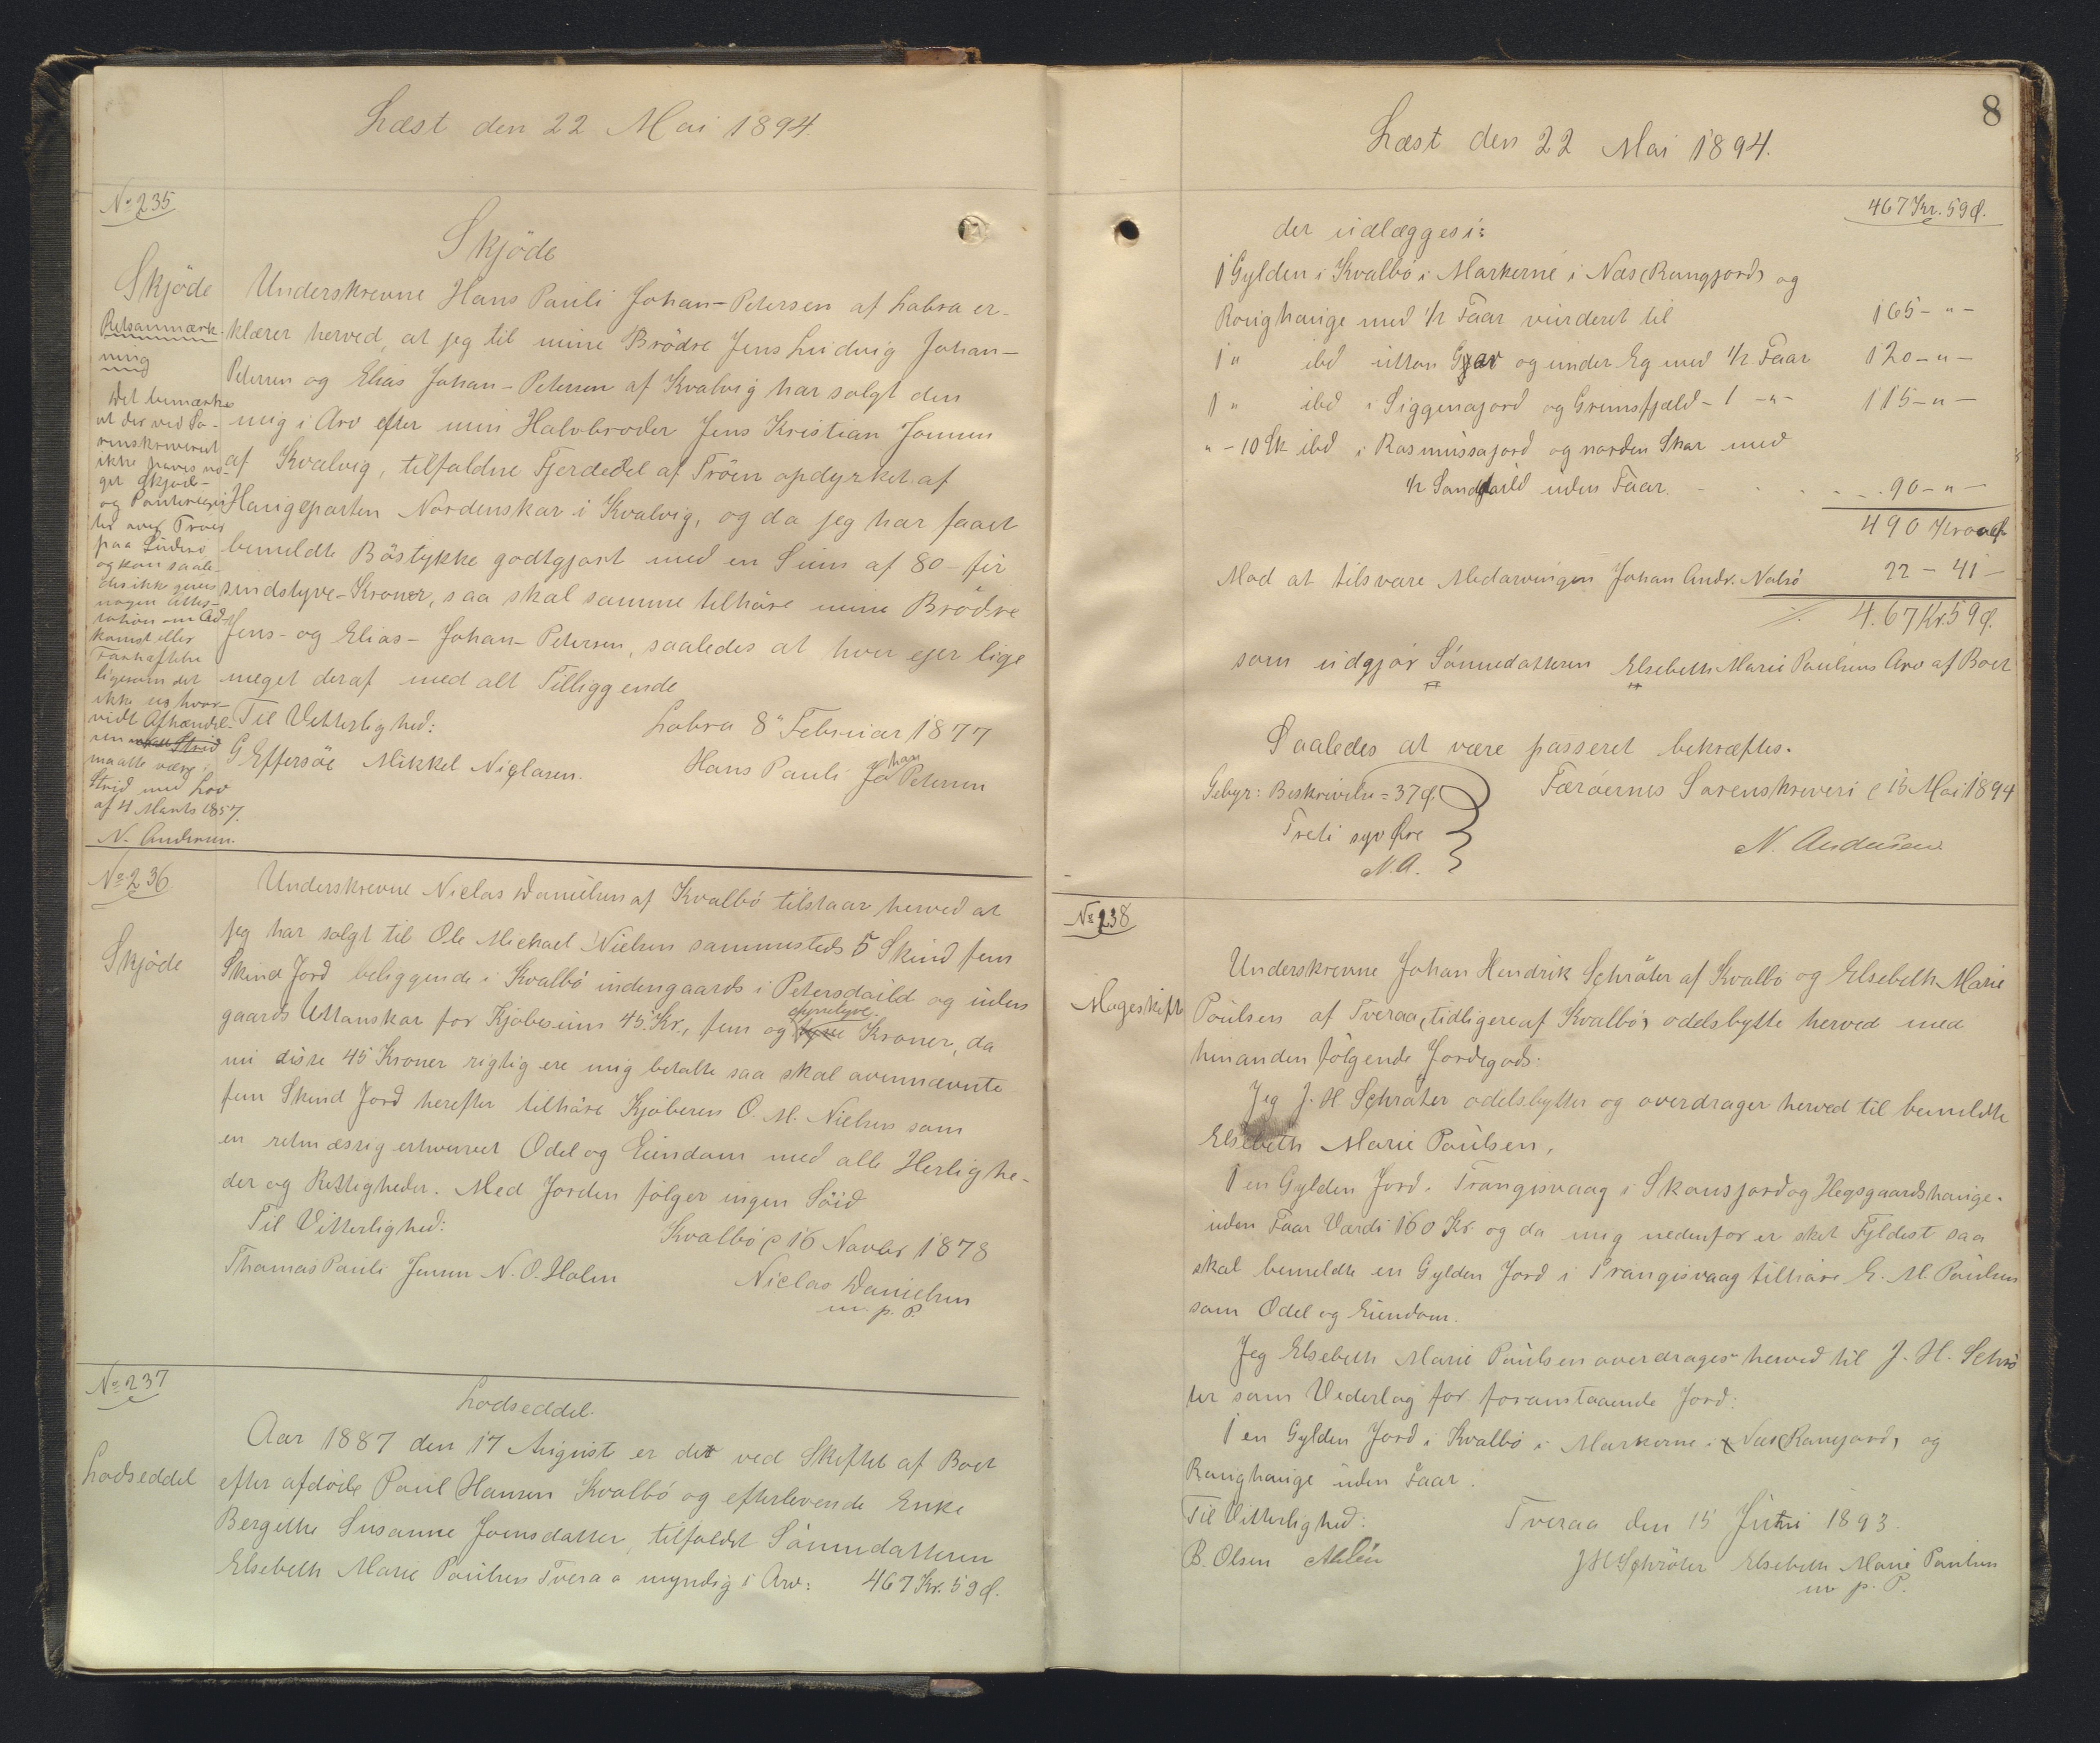 Læst den 22 Mai 1894.
No 235
Skjöde
Skjöde
Retsanmærk-
ning
Det bemærkes
at der ved So-
renskriveriet
ikke haves no-
get Skjøde-
og Panteregis-
ter over Troer
paa Suderö
og kan saale-
des ikke gives
nogen Attes-
tation om Ad-
komst eller
Panhæftelse
ligesom det
ikke hvor-
vidt Afhændel-
sen
maatte være i
Strid med Lov
af 4 Marts 1857.
N. Andersen.
Underskrevne Hans Pauli Johan-Petersen af Labra er-
klærer herved, at jeg til mine Brödre Jens Ludvig Johan-
Petersen og Elias Johan-Petersen af Kvalvig har solgt den
mig i Arv efter min Halvbroder Jens Kristian Joensen
af Kvalvig, tilfaldne Fjerdedel af Tröen opdyrket af
Haugeparten Nordenskar i Kvalvig, og da jeg har faaet
bemeldte Böstykke godtgjort med en Sum af 80-fir
sindstyve-Kroner, saa skal samme tilhöre mine Brödre
Jens- og Elias- Johan-Petersen, saaledes at hver ejer lige
meget deraf med alt Tilliggende
Til Vitterlighed: Labra 8" Februar 1877
G Effersöe Mikkel Niclasen. Hans Pauli Johan Petersen
No 236
Skjöde
Underskrevne Niclas Danielsen af Kvalbö tilstaar herved at
jeg har solgt til Ole Michael Nielsen sammesteds 5 Skind fem
Skind Jord beliggende i Kvalbö indengaards i Petersdaild og uden
gaards Uttanskar for Kjöbesum 45 Kr., fem og fyretyve Kroner, da
nu disse 45 Kroner rigtig ere mig betalte saa skal ovennævnte
fem Skind Jord herefter tilhöre Kjöberen O. M. Nielsen som
en retmæssig erhvervet Odel og Eiendom med alle Herlighe-
der og Rettigheder. Med Jorden fölger ingen Söid
Til Vitterlighed: Kvalbö p 16 Novbr 1878
Thomas Pauli Jensen N. O. Holm Niclas Danielsen
m. p. P.
No 237
Lodseddel
Lodseddel.
Aar 1887 den 17 August er det ved Skiftet af Boet
efter afdöde Poul Hansen Kvalbö og efterlevende Enke
Bergithe Susanne Joensdatter, tilfaldet Sönnedatteren
Elsebeth Marie Poulsen Tveraa myndig i Arv: 467 Kr. 59 Ø.
8
Læst den 22 Mai 1894.
467 Kr. 59 Ø.
der udlægges i:
1 Gylden i Kvalbö i Markerne i Næs (Rangjord) og
Roughauge med 1/2 Faar vurderet til 165 - " -
1 " ibd uttan Gjar og under Eg med 1/2 Faar 120 - " -
1 " ibd i Siggenajord og Grimsfjæld - 1 - " - 115 - " -
" - 10 Sk ibd i Rasmussajord og norden Skar med
1/2 Sandfaild uden Faar. 90 - " -
490 Kroner
Mod at tilsvare Medarvingen Johan Andr. Nolsö 22 - 41 -
467 Kr. 59 Ø.
som udgjör Sönnedatteren Elsebeth Marie Poulsens Arv af Boet
Saaledes at være passeret bekræftes.
Gebyr: Beskrivelse = 37 Ø. Færöernes Sorenskriveri p 15 Mai 1894
Treti syv Öre
N. A. N. Andersen
No 238
Mageskifte
Underskrevne Johan Hendrik Schröter af Kvalbö og Elsebeth Marie
Poulsen af Tveraa, (tidligere af Kvalbö) odelsbytte herved med
hinanden fölgende Jordegods:
Jeg J. H. Schröter odelsbytter og overdrager herved til bemeldte
Elsebeth Marie Poulsen,
1 en Gylden Jord i Trangisvaag i Skansjord og Hegsgaardshauge
uden Faar Værdi 160 Kr. og da mig nedenfor er sket Fyldest saa
skal bemeldte en Gylden Jord i Trangisvaag tilhöre E. M. Poulsen
som Odel og Eiendom.
Jeg Elsebeth Marie Poulsen overdrages herved til J. H. Schrö
ter som Vederlag for foranstaaende Jord:
1 en Gylden Jord i Kvalbö i Markerne i Næs (Rangjord) og
Roughauge uden Faar.
Til Vitterlighed: Tveraa den 15 Juni 1893.
B. Olsen J H Schröter Elsebeth Marie Poulsen
m p. P.